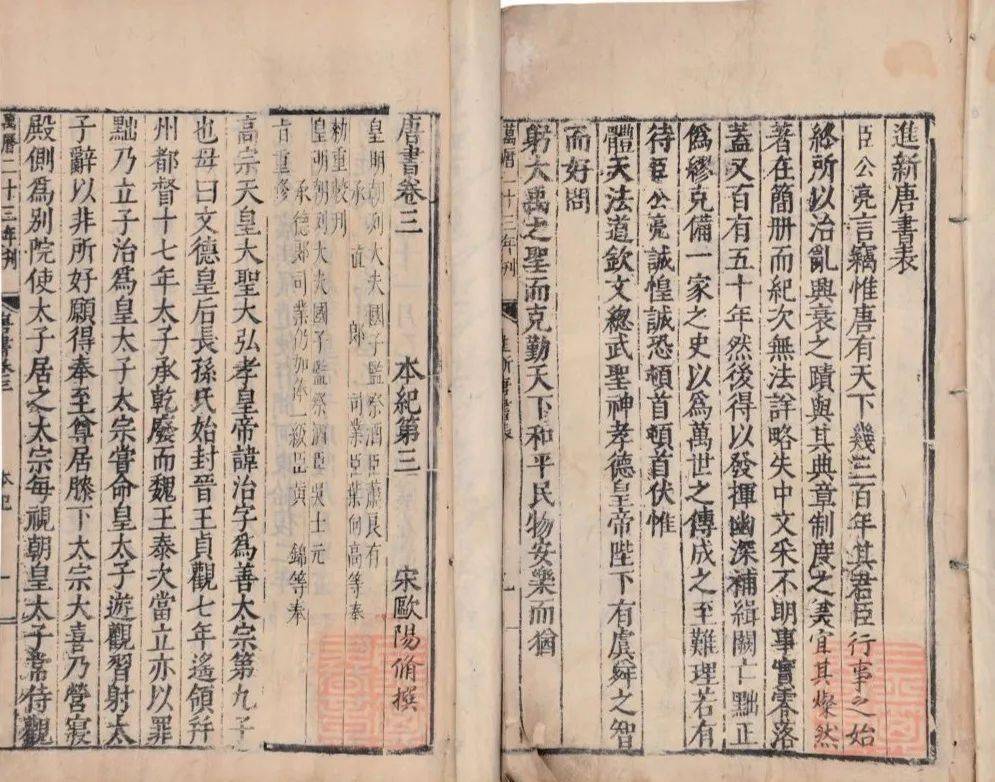 進新唐書表
臣公亮言竊惟唐有天下幾三百年其君臣行事之始
終所以治亂興衰之蹟與其典章制度之美宜其燦然
著在簡册而紀次無法詳略失中文采不明事實零落
蓋又百有五十年然後得以發揮幽深補緝闕亡黜正
僞繆克備一家之史以爲萬世之傳成之至難理若有
待臣公亮誠惶誠恐頓首頓首伏惟
體天法道欽文總武聖神孝德皇帝陛下有虞舜之智
而好問
躬大禹之聖而克勤天下和平民物安樂而猶
萬曆二十三年刊
進新唐書表
唐書卷三 本紀第三 宋歐陽脩撰
皇明朝列大夫國子監祭酒臣蕭良有
承直郎 司業臣葉向高等奉
勑重教刊
皇明朝列大夫國子監祭酒臣吳士元
承德郎司業仍加俸一級臣黃 錦等奉
旨重修
高宗天皇大聖大弘孝皇帝諱治字爲善太宗第九子
也母曰文德皇后長孫氏始封晉王貞觀七年遙領并
州都督十七年太子承乾廢而魏王泰次當立亦以罪
黜乃立子治爲皇太子太宗嘗命皇太子遊觀習射太
子辭以非所好願得奉至尊居膝下太宗大喜乃營寢
殿側爲別院使太子居之太宗每視朝皇太子常侍觀
萬曆二十三年刊
唐書卷三
本紀
一